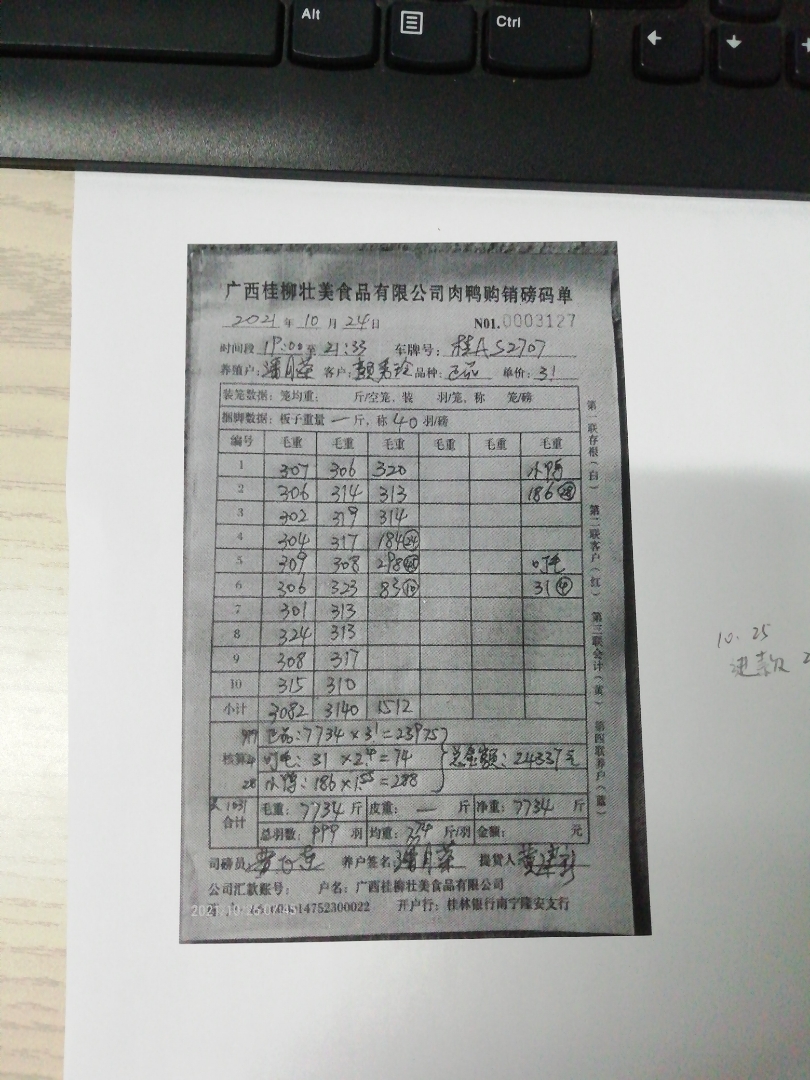 Alt
Ctrl
广西桂柳壮美食品有限公司肉鸭购销磅码单
2021年10月24日 N01.0003127
时间段19:00至21:33 车牌号:桂A S2707
养殖户:潘月莲 客户: 品种:正品 单价:3.1
装笼数据:笼均重: 斤/空笼,装 羽/笼,称 笼/磅
捆脚数据:板子重量 一 斤,称40羽/磅
编号 毛重 毛重 毛重 毛重 毛重 毛重
1 307 306 320 小鸭
2 306 314 313 186 28
3 302 319 314
4 304 317 184 24
5 309 308 298 叼毛
6 306 323 83 10 31 4
7 301 313
8 324 313
9 308 317
10 315 310
小计 3082 3140 1512
999 正品:7734×3.1=23975
核算 4 叼毛:31×2.4=74 总金额:24337元
28 小鸭:186×1.55=288
共1031
合计
毛重:7734斤 皮重:一 斤 净重:7734 斤
总羽数:999 羽 均重:7.74 斤/羽 金额: 元
司磅员 养户签名: 提货人
公司汇款账号: 户名:广西桂柳壮美食品有限公司
14752300022 开户行:桂林银行南宁隆安支行
第一联存根(白) 第二联客户(红) 第三联会计(蓝) 第四联养户(蓝)
10.25
进款